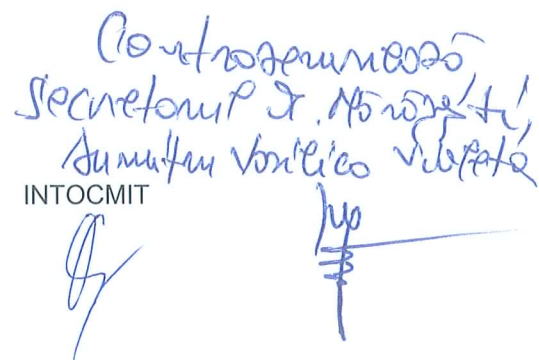 Contrasemnează
Secretarul
Dumitru Vasilica Violeta
INTOCMIT